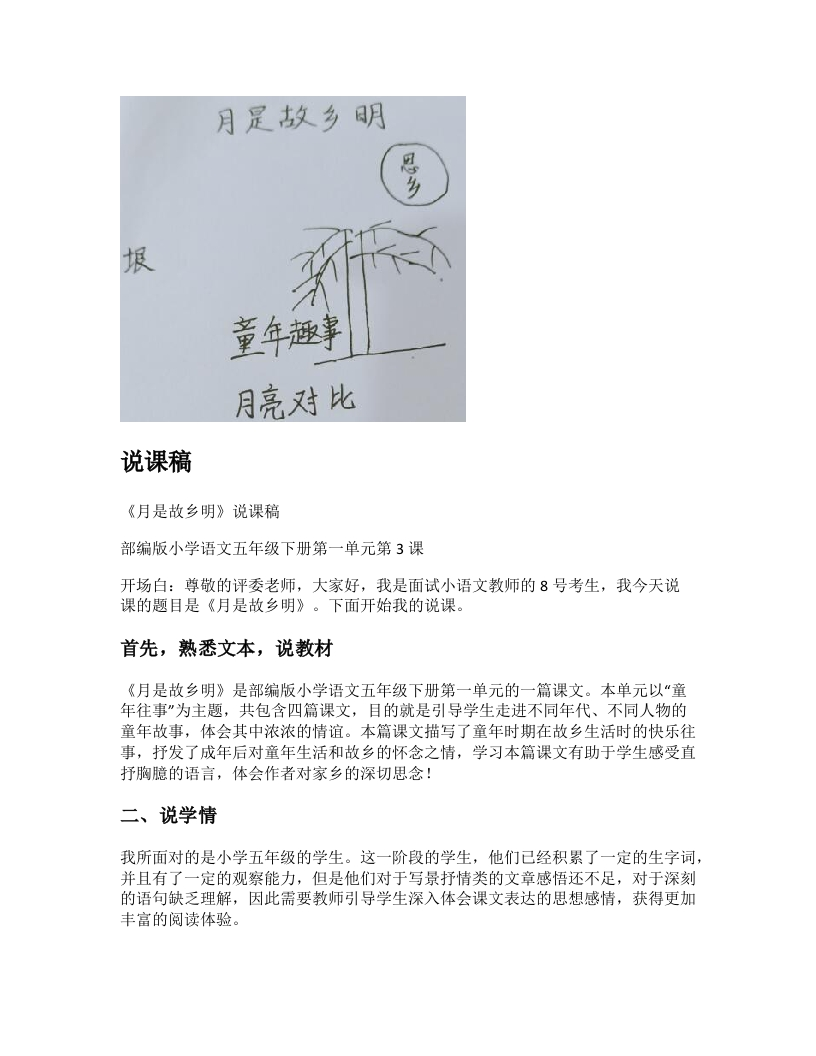 月是故乡明
思
乡
垠
童年趣事
月亮对比
说课稿
《月是故乡明》说课稿
部编版小学语文五年级下册第一单元第 3 课
开场白：尊敬的评委老师，大家好，我是面试小语文教师的 8 号考生，我今天说
课的题目是《月是故乡明》。下面开始我的说课。
首先，熟悉文本，说教材
《月是故乡明》是部编版小学语文五年级下册第一单元的一篇课文。本单元以“童
年往事”为主题，共包含四篇课文，目的就是引导学生走进不同年代、不同人物的
童年故事，体会其中浓浓的情谊。本篇课文描写了童年时期在故乡生活时的快乐往
事，抒发了成年后对童年生活和故乡的怀念之情，学习本篇课文有助于学生感受直
抒胸臆的语言，体会作者对家乡的深切思念！
二、说学情
我所面对的是小学五年级的学生。这一阶段的学生，他们已经积累了一定的生字词，
并且有了一定的观察能力，但是他们对于写景抒情类的文章感悟还不足，对于深刻
的语句缺乏理解，因此需要教师引导学生深入体会课文表达的思想感情，获得更加
丰富的阅读体验。